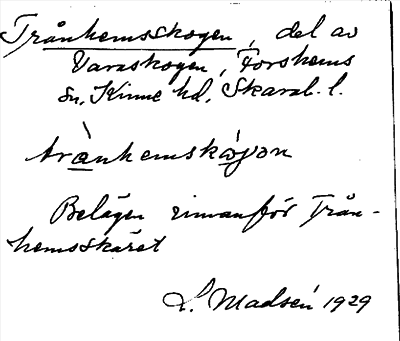 Trånhemsskogen, del av
Varaskogen, Forshems
sn, Kinne hd, Skarab. l.
trànhemskɷjən
Belägen rinnanför Trån-
hemsskäret
L. Madsén 1929